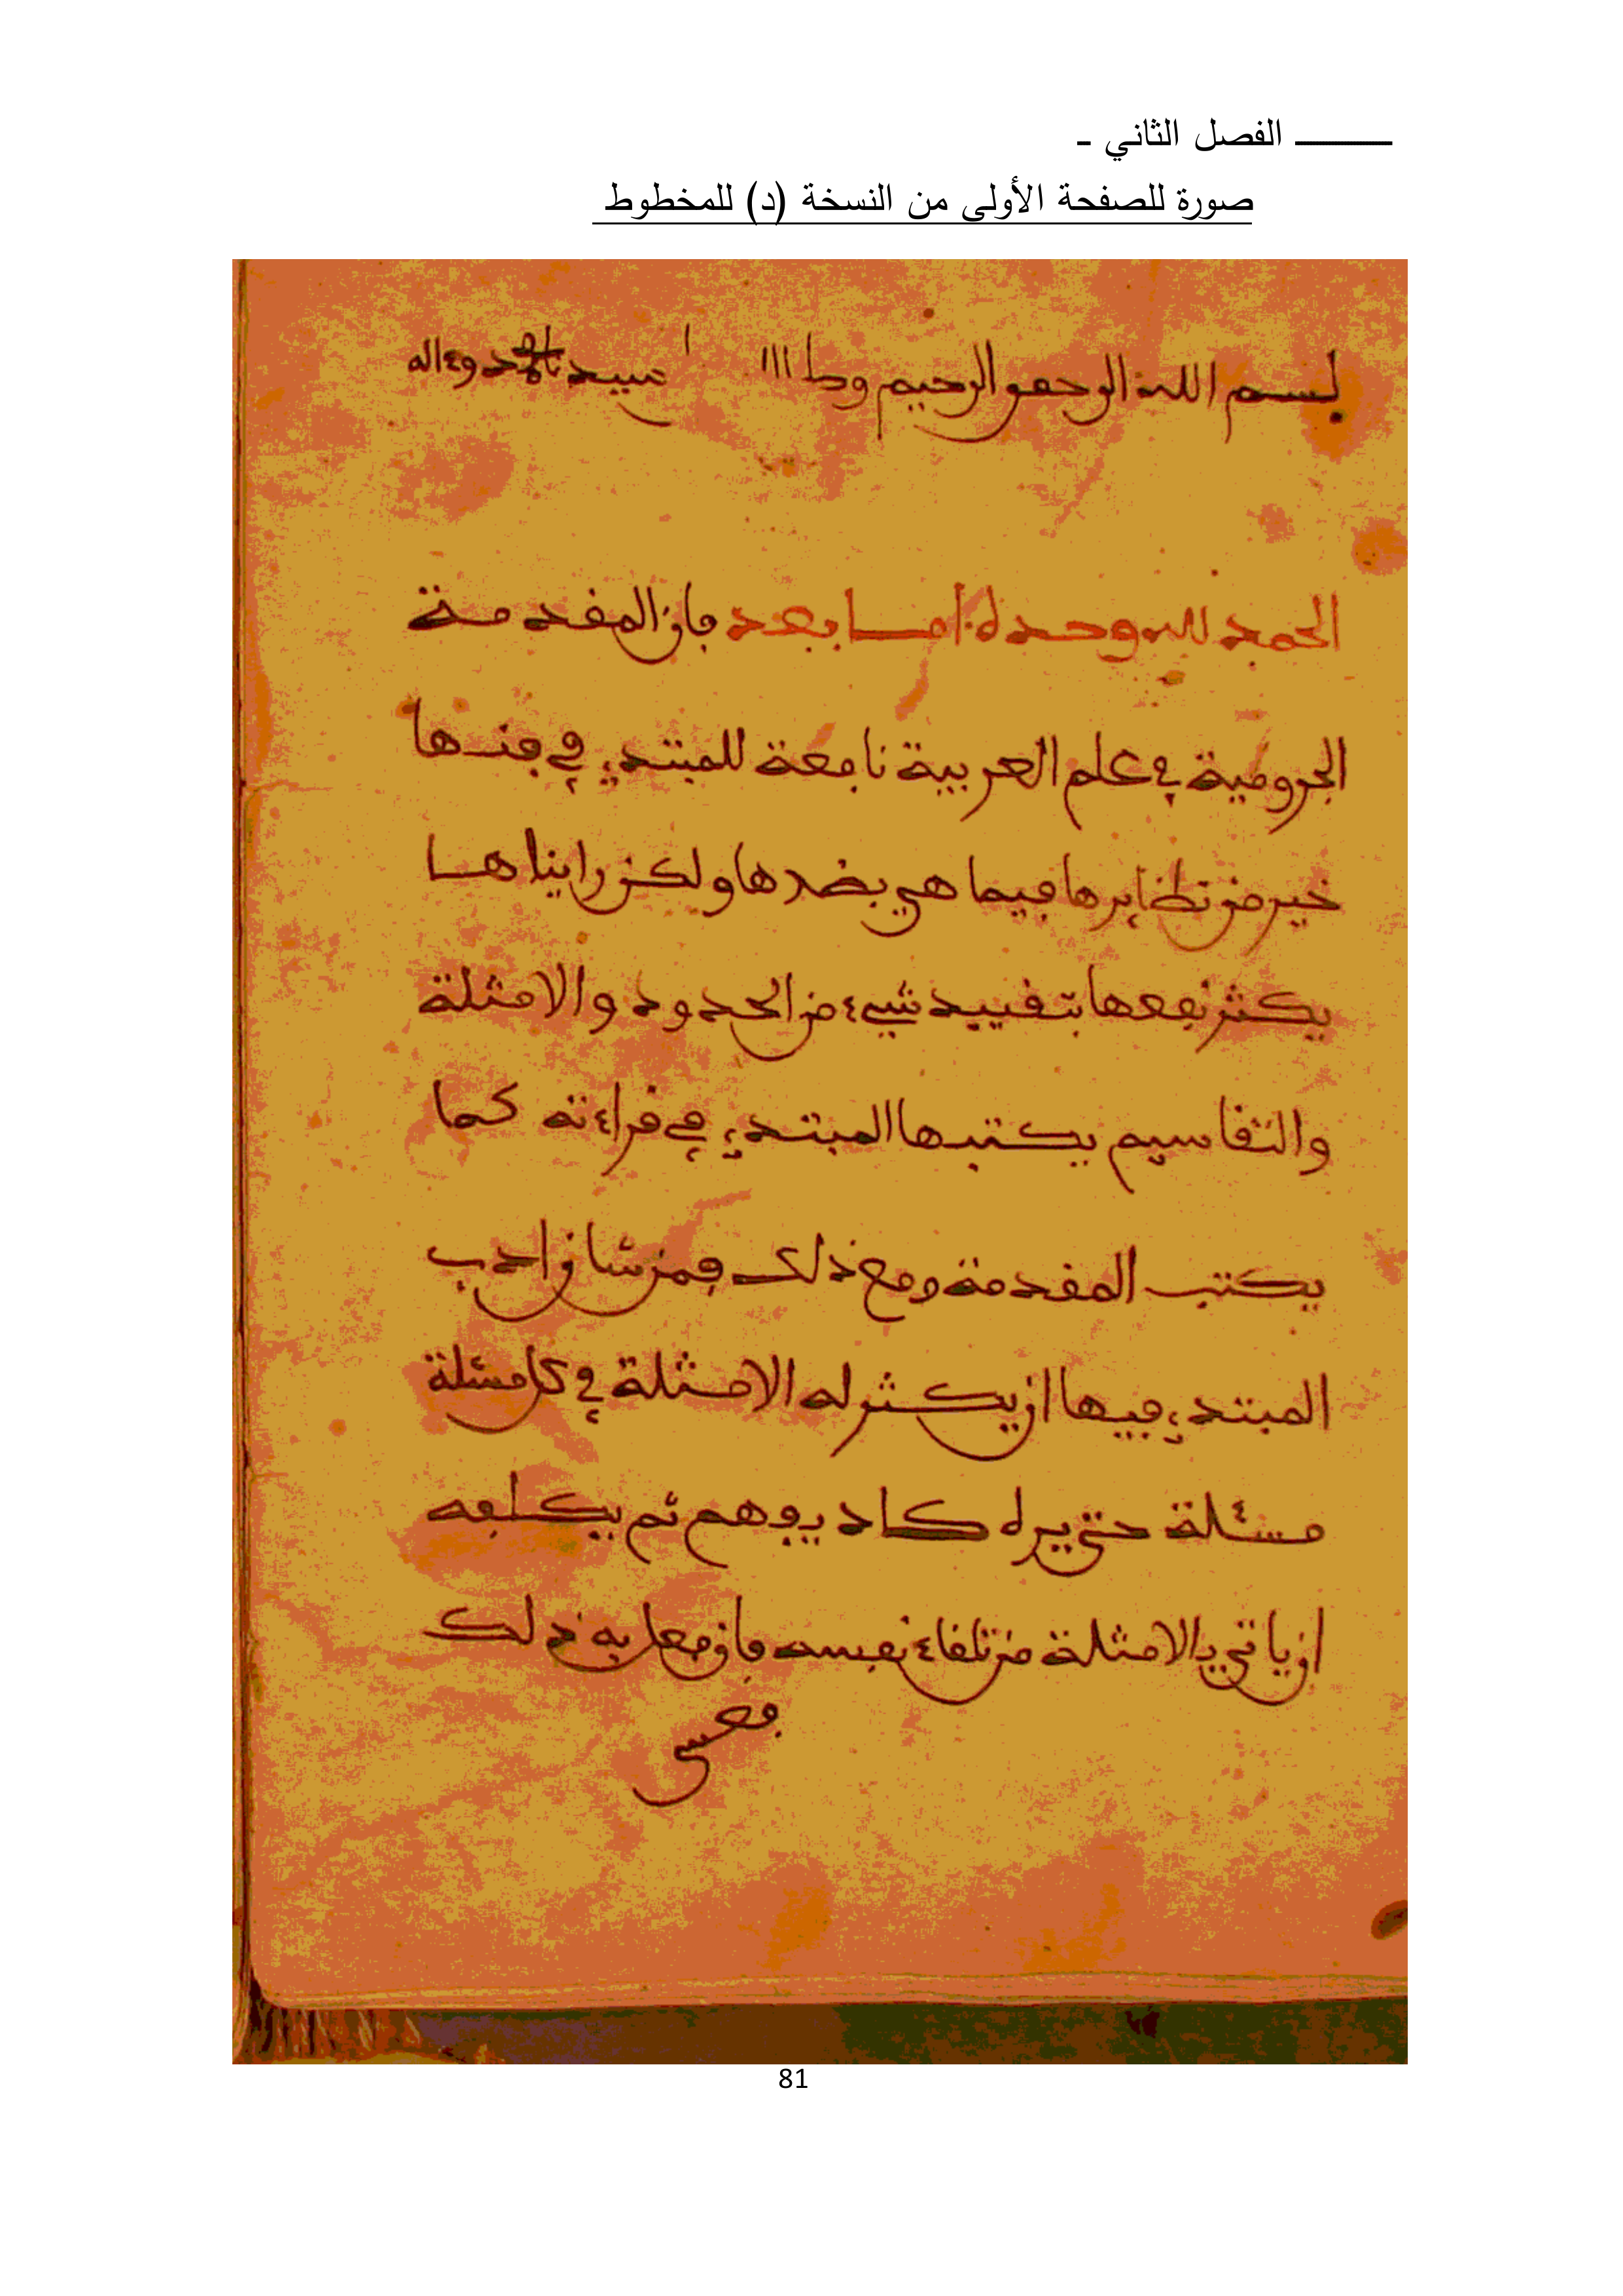 الفصل الثاني ـ
صورة للصفحة الأولى من النسخة (د) للمخطوط
بسم الله الرحمن الرحيم سيدنا محمد وءاله
الحمد لله وحده أما بعد فإن المقدمة
الجرومية في علم العربية نافعة للمبتدئ في فنها
خير من نظايرها فيما هي بصددها ولكن راينا هـا
يكثر نفعها بتقييد شيء من الحدود والامثلة
والتقاسيم يكتبها المبتدئ في قراءته كما
يكتب المقدمة ومع ذلك فمن شان ادب
المبتدئ فيها ان يكثر له الامثلة في كل مسئلة
مسئلة حتى يرى له كاد يوهم ثم يكلفه
ان ياتي بالامثلة من تلقاء نفسه فان فعل به ذلك
فعسى
81